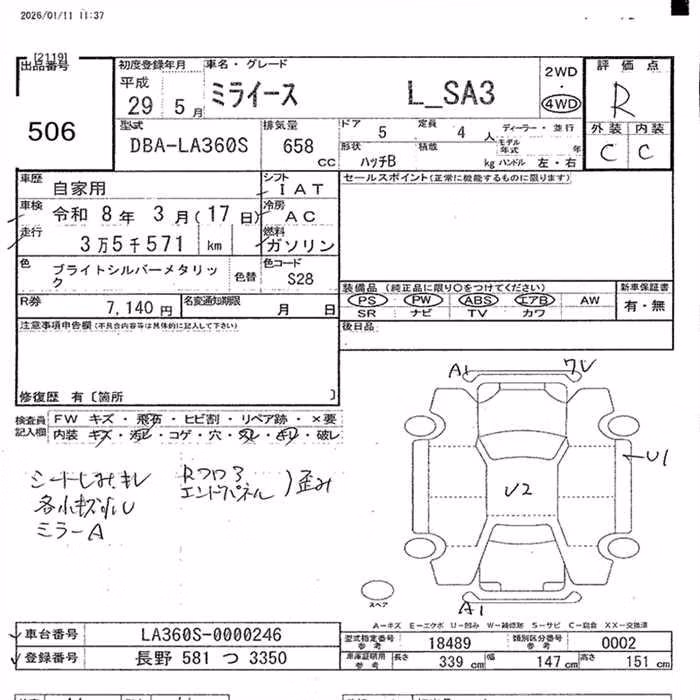 2026/01/11 11:37
[2119]
出品番号 初度登録年月 車名・グレード 2WD・4WD 評価点
506 平成 29 5月 ミライース L_SA3 R
型式 DBA-LA360S 排気量 658 CC ドア 5 定員 4人 ディーラー・並行 外装 内装
形状 ハッチB 積載 kg モデル年式 年 ハンドル 左・右 C C
車歴 自家用 シフト IAT セールスポイント(正常に機能するものに限ります)
車検 令和 8年 3月(17日) 冷房 AC
走行 3万5千571 km 燃料 ガソリン
色 ブライトシルバーメタリック 色替 色コード S28
装備品 (純正品に限り○をつけてください) 新車保証書
PS PW ABS エアB AW 有・無
SR ナビ TV カワ
R券 7,140円 名変通知期限 月 日
後日品
注意事項申告欄(不具合内容等は具体的に記入して下さい)
修復歴 有〔箇所 〕
検査員記入欄 FW キズ・飛石・ヒビ割・リペア跡・×要
内装 キズ・汚レ・コゲ・穴・スレ・キレ・破レ
A1 ワレ
シートしみキレ Rフロア
各小キズ小U エンドパネル )歪み
ミラーA
U1
U2
A1
スペア
A-キズ E-エクボ U-凹み W-補修跡 S-サビ C-腐食 XX-交換済
車台番号 LA360S-0000246
登録番号 長野 581 つ 3350
型式指定番号 参考 18489 類別区分番号 参考 0002
車庫証明用 参考 長さ 339 cm 幅 147 cm 高さ 151 cm